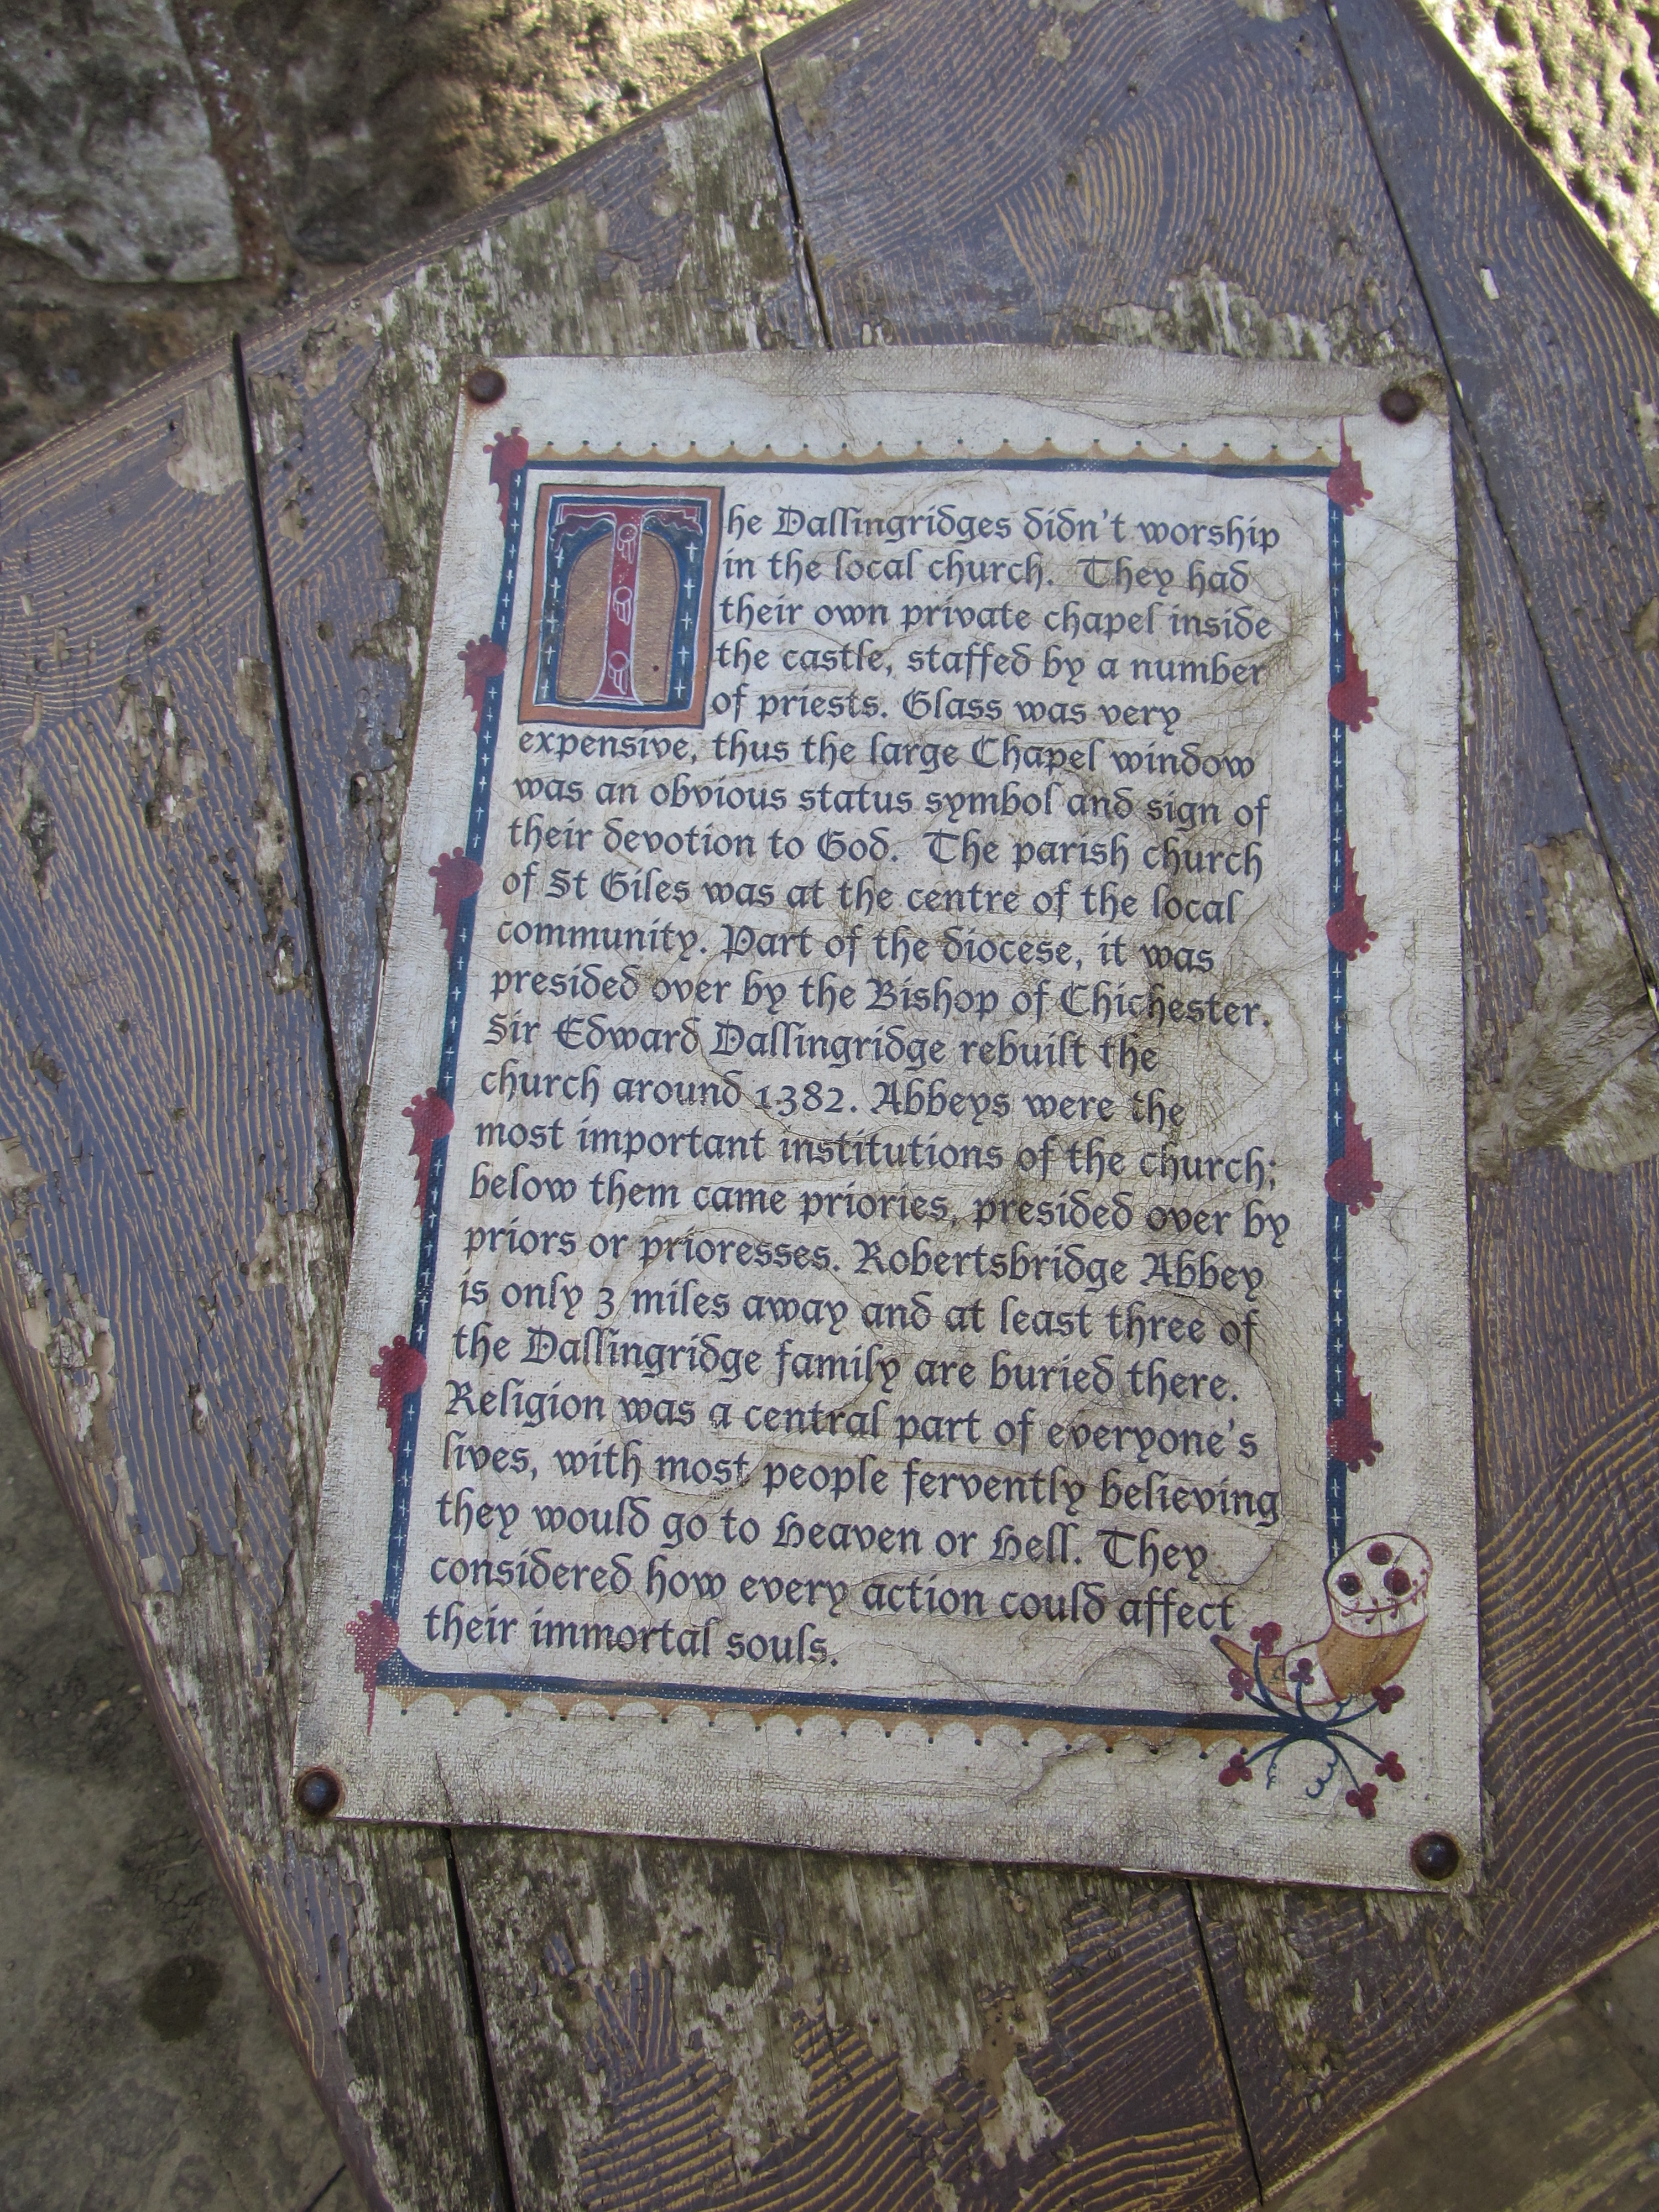 The Dallingridges didn't worship
in the local church. They had
their own private chapel inside
the castle, staffed by a number
of priests. Glass was very
expensive, thus the large Chapel window
was an obvious status symbol and sign of
their devotion to God. The parish church
of St Giles was at the centre of the local
community. Part of the diocese, it was
presided over by the Bishop of Chichester.
Sir Edward Dallingridge rebuilt the
church around 1382. Abbeys were the
most important institutions of the church;
below them came priories, presided over by
priors or prioresses. Robertsbridge Abbey
is only 3 miles away and at least three of
the Dallingridge family are buried there.
Religion was a central part of everyone's
lives, with most people fervently believing
they would go to Heaven or Hell. They
considered how every action could affect
their immortal souls.